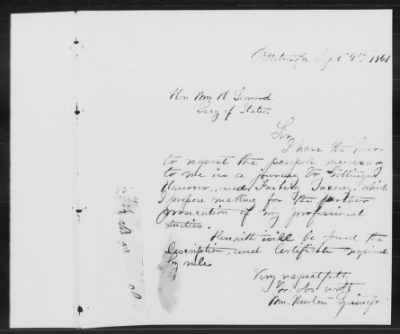 Pittsburgh Sept 9th 1861
Hon Wm H Seward
Secy of State.
Sir
I have the honor
to request the passport necessary
to me in a journey to Göttingen
Hanover, and Freiberg Saxony, which
I propose making for the further
prosecution of my professional
studies.
Herewith will be found the
description and certificate required
by rules
Very respectfully
Yr. obt servt
Wm.